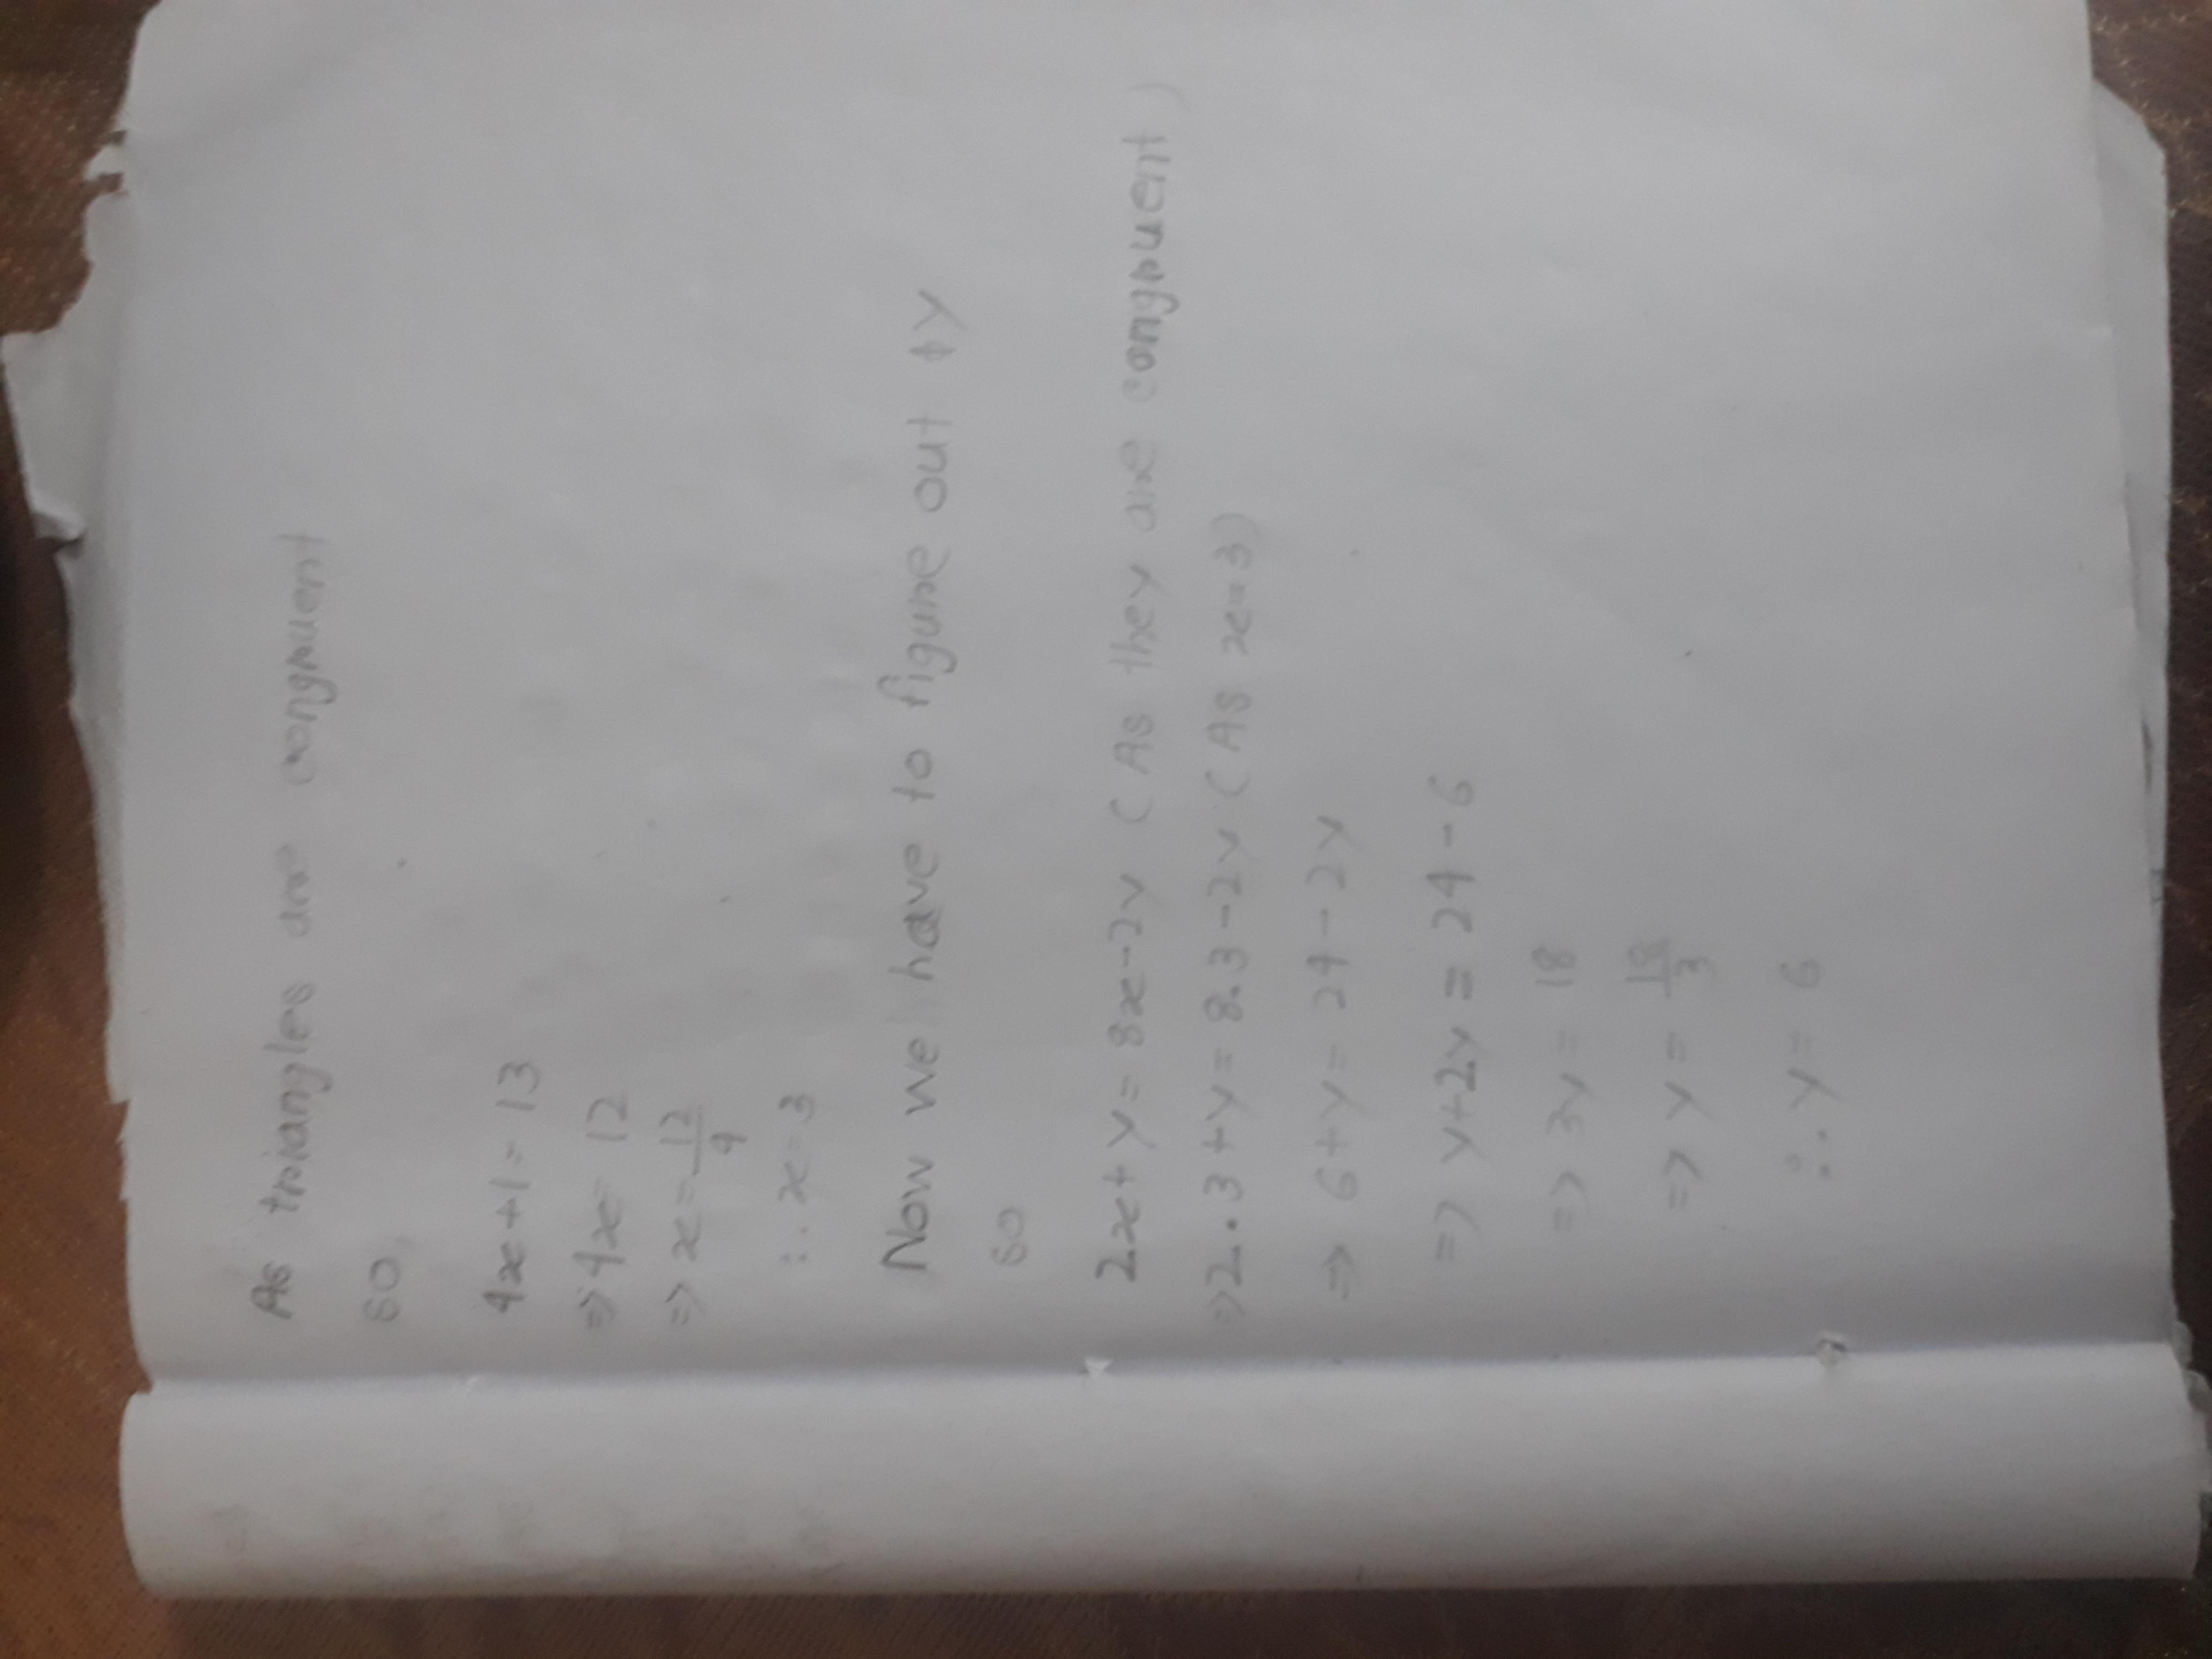 As triangles are congruent
so,
4x+1=13
=> 4x=12
=> x=12/4
∴ x=3
Now we have to figure out y
so
2x+y=8x-2y (As they are congruent)
=> 2.3+y=8.3-2y (As x=3)
=> 6+y=24-2y
=> y+2y=24-6
=> 3y=18
=> y=18/3
∴ y=6